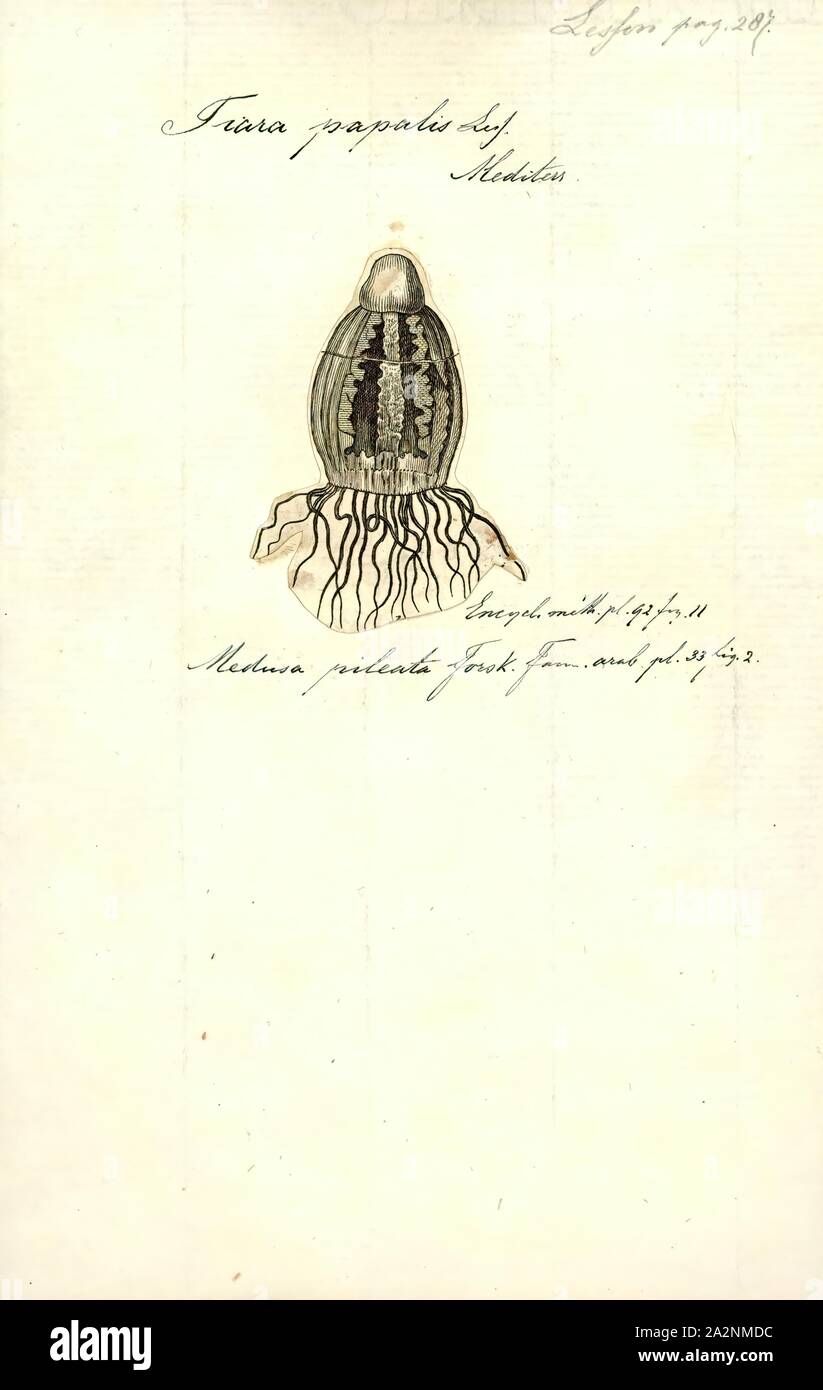 Lesson pag. 287.
Tiara papalis Less.
Mediterr.
Encycl. méth. pl. 92 fig. 11
Medusa pileata Forsk. Faun. arab. pl. 33 fig. 2.
a
alamy
Image ID: 2A2NMDC
www.alamy.com